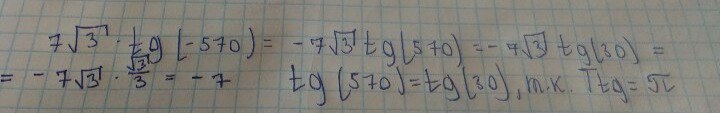 7√3 · tg (-570) = -7√3 tg(570) = -7√3 tg(30) =
= -7√3 · √3/3 = -7 tg(570) = tg(30), т.к. Ttg = π